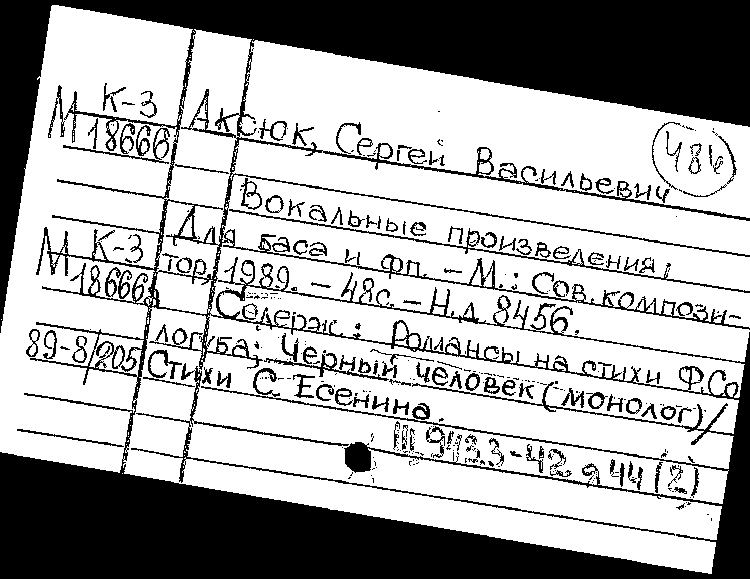 К-3
М 18666
Аксюк, Сергей Васильевич
486
Вокальные произведения;
Для баса и фп. - М.: Сов. компози-
М К-3
18666а
тор, 1989. - 48с. - Н.д. 8456.
Содерж.: Романсы на стихи Ф. Со
логуба; Черный человек (монолог)/
89-8/205
Стихи С. Есенина.
Щ 943.3-42 я 44 (2)